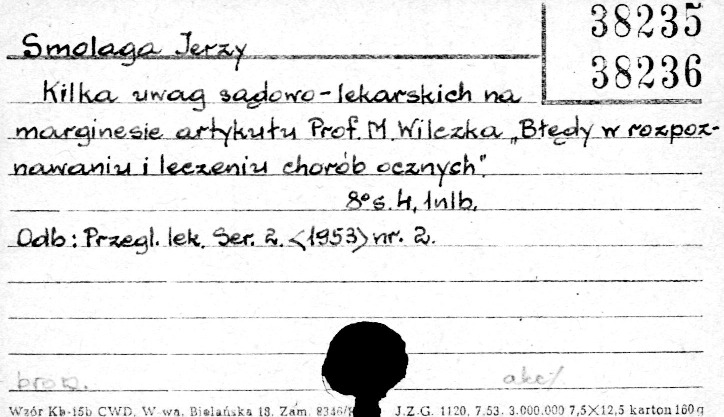 38235
38236
Smolaga Jerzy
Kilka uwag sądowo-lekarskich na
marginesie artykułu Prof. M. Wilczka „Błędy w rozpoz-
nawaniu i leczeniu chorób ocznych".
8° s. 4, 1nlb.
Odb: Przegl. lek. Ser. 2. <1953> nr. 2.
brosz.
akc/
Wzór Kb-15b CWD, W-wa, Bielańska 18, Zam. 8346/ J.Z.G. 1120, 7.53. 3.000.000 7,5×12,5 karton 160 g